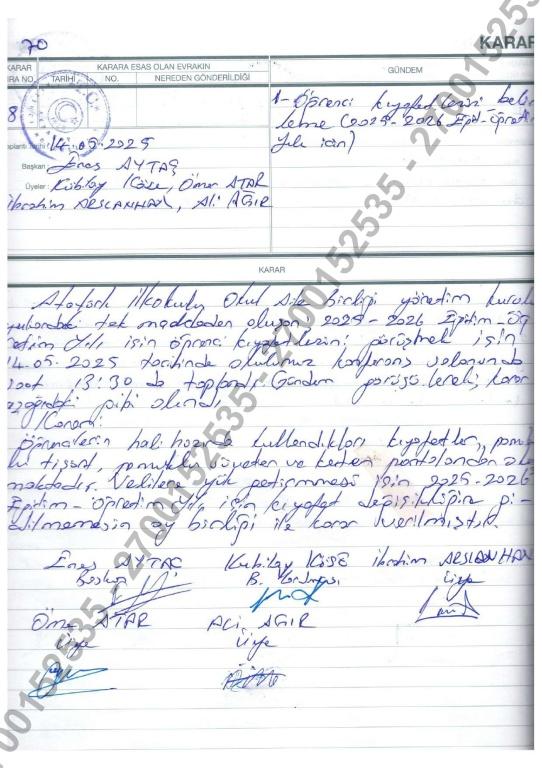 70
KARAR
KARAR
KARARA ESAS OLAN EVRAKIN
GÜNDEM
RA NO.
TARİHİ
NO.
NEREDEN GÖNDERİLDİĞİ
T.C.
8
1- Öğrenci kıyafetlerini belir
leme (2025-2026 Eğit-Öğreti
Yılı için)
oplantı Tarihi 14.05.2025
Başkan Enes AYTAÇ
Üyeler Kubilay KÖSE, Ömer ATAR
İbrahim ARSLANHAN, Ali AĞIR
KARAR
Atatürk İlkokulu Okul Aile birliği yönetim kurulu
yukarıdaki tek maddeden oluşan 2025-2026 Eğitim-Öğ
retim Yılı için öğrenci kıyafetlerini görüşmek için
14.05.2025 tarihinde okulumuz konferans salonunda
saat 13:30 da toplandı. Gündem görüşülerek, karar
aşağıdaki gibi alındı.
Karar:
Öğrencilerin hali hazırda kullandıkları kıyafetler, pamu
klu tişört, pamuklu süveter ve keten pantolondan
maktadır. Velilere yük getirmemesi için 2025-2026
Eğitim-Öğretim Yılı için kıyafet değişikliğine gi-
dilmemesine oy birliği ile karar verilmiştir.
Enes AYTAÇ
Kubilay KÖSE
İbrahim ARSLANHAN
Başkan
B. Yardımcısı
Üye
Ömer ATAR
Ali AĞIR
Üye
Üye
2700152535 - 2700152535 - 2700152535 - 2700152535